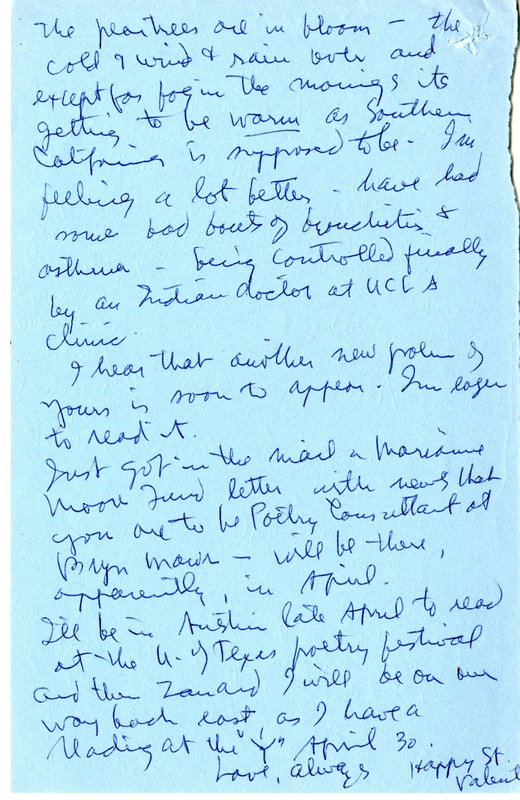 The peartrees are in bloom – the
cold & wind & rain over and
except for fog in the mornings its
getting to be warm as Southern
California is supposed to be. I'm
feeling a lot better – have had
some bad bouts of bronchitis &
asthma – being controlled finally
by an Indian doctor at UCLA
clinic.
I hear that another new poem of
yours is soon to appear. I'm eager
to read it.
Just got in the mail a Marianne
Moore Fund letter with news that
you are to be Poetry Consultant at
Bryn Mawr – will be there,
apparently, in April.
I'll be in Austin late April to read
at the U. of Texas poetry festival
and then Zan and I will be on our
way back east, as I have a
reading at the "Y" April 30.
Love, always Happy St.
Valent